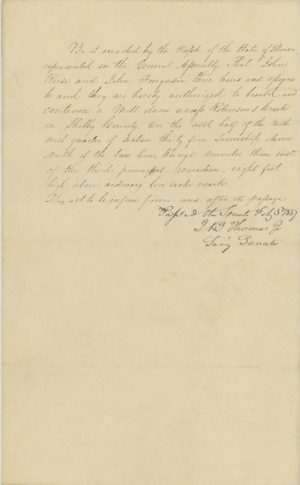 Be it enacted by the People of the State of Illinois
represented in the General Assembly That John
and John Ferguson their heirs and assigns
be and they are hereby authorized to build and
continue a Mill dam across Robinsons Creek
in Shelby County on the west half of the North
west quarter of Section thirty five Township eleven
north of the base line Range number three east
of the third principal meridian, eight feet
high above ordinary low water mark
This act to be in force from and after its passage
Passed the Senate Feby 8 1837
Thomas Jr
Secy Senate